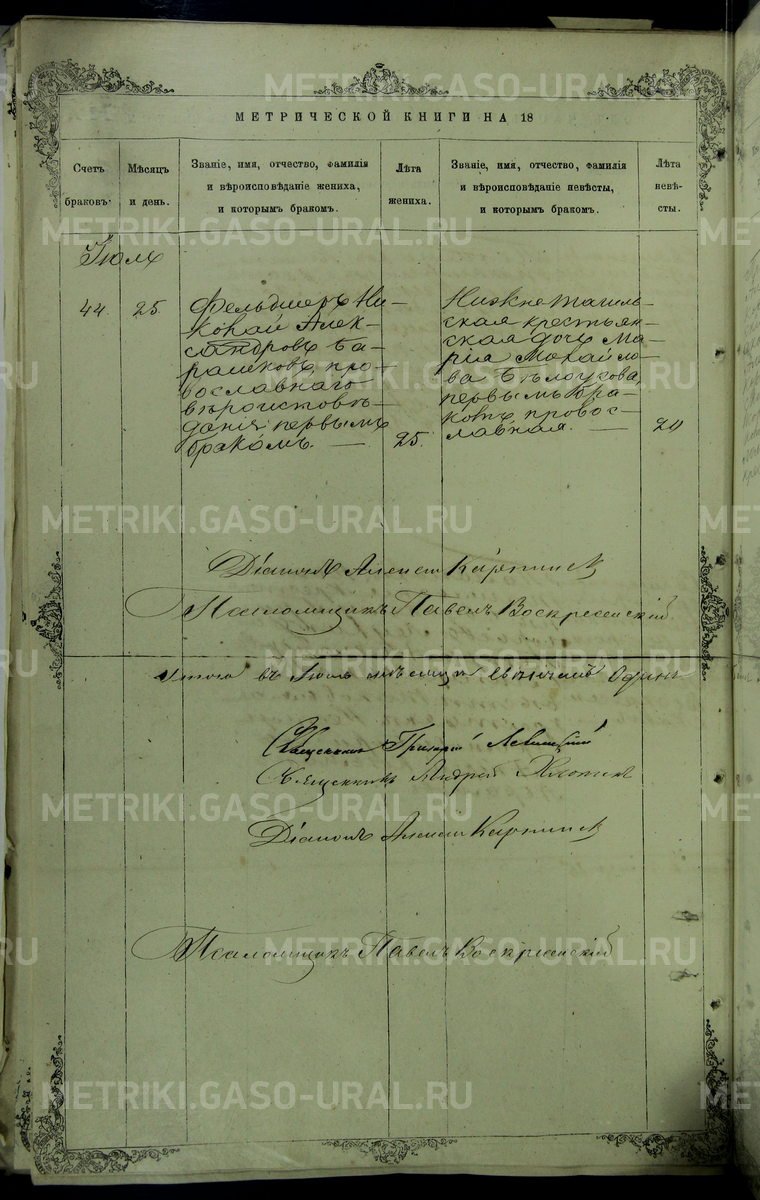 МЕТРИЧЕСКОЙ КНИГИ НА 18
Счетъ браковъ.
Мѣсяцъ и день.
Званіе, имя, отчество, фамилія
и вѣроисповѣданіе жениха,
и которымъ бракомъ.
Лѣта жениха.
Званіе, имя, отчество, фамилія
и вѣроисповѣданіе невѣсты,
и которымъ бракомъ.
Лѣта невѣ-
сты.
Іюль
44.
25
Фельдшеръ Ни-
колай Алек-
сандровъ Ба-
рашковъ, пра-
вославнаго
вѣроисповѣ-
данія, первымъ
бракомъ.
25.
Нижнетагиль-
ская крестьян-
ская дочь Ма-
рія Михайло-
ва Бѣлоусова,
первымъ бра-
комъ, правос-
лавная.
20
Діаконъ Алексій
Псаломщикъ Павелъ Воскресенскій
Итого въ Іюль мѣсяцѣ Одинъ
Священникъ Григорій Левитскій
Священникъ Андрей
Діаконъ Алексій
Псаломщикъ Павелъ Воскресенскій
METRIKI.GASO-URAL.RU